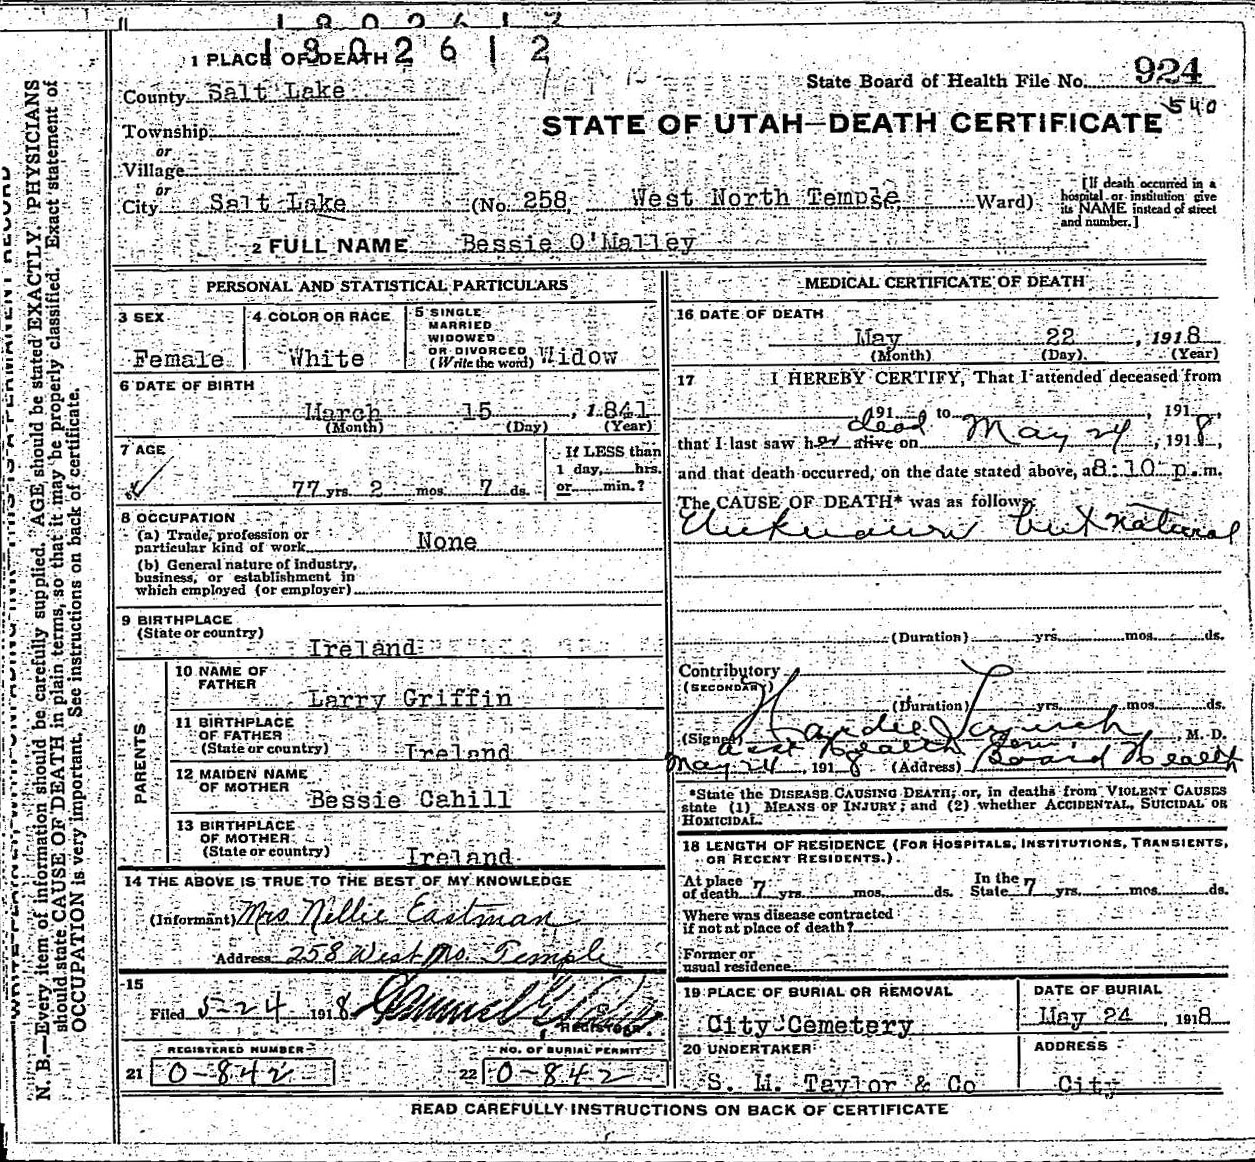 1802612
1 PLACE OF DEATH
State Board of Health File No. 924
540
County Salt Lake
STATE OF UTAH—DEATH CERTIFICATE
Township
or
Village
or
City Salt Lake (No. 258 West North Temple, Ward)
[If death occurred in a hospital or institution give its NAME instead of street and number.]
2 FULL NAME Bessie O'Malley
PERSONAL AND STATISTICAL PARTICULARS
3 SEX
Female
4 COLOR OR RACE
White
5 SINGLE
MARRIED
WIDOWED
OR DIVORCED
(Write the word) Widow
6 DATE OF BIRTH
March 15, 1841
(Month) (Day) (Year)
7 AGE
77 yrs. 2 mos. 7 ds.
If LESS than
1 day, hrs.
or min.?
8 OCCUPATION
(a) Trade, profession or
particular kind of work None
(b) General nature of industry,
business, or establishment in
which employed (or employer)
9 BIRTHPLACE
(State or country)
Ireland
PARENTS
10 NAME OF
FATHER
Larry Griffin
11 BIRTHPLACE
OF FATHER
(State or country) Ireland
12 MAIDEN NAME
OF MOTHER
Bessie Cahill
13 BIRTHPLACE
OF MOTHER
(State or country) Ireland
14 THE ABOVE IS TRUE TO THE BEST OF MY KNOWLEDGE
(Informant) Mrs Nellie Eastman
Address 258 West No. Temple
15
Filed 5-24 1918
REGISTRAR
REGISTERED NUMBER
21 0-842
NO. OF BURIAL PERMIT
22 0-842
MEDICAL CERTIFICATE OF DEATH
16 DATE OF DEATH
May 22, 1918
(Month) (Day) (Year)
17 I HEREBY CERTIFY, That I attended deceased from
191 to , 191 ,
that I last saw her alive on dead May 24, 1918,
and that death occurred, on the date stated above, a 8:10 p.m.
The CAUSE OF DEATH* was as follows:
Unknown but natural
(Duration) yrs. mos. ds.
Contributory
(SECONDARY)
(Duration) yrs. mos. ds.
(Signed) , M. D.
Asst Health
May 24, 1918 (Address) Board Health
*State the DISEASE CAUSING DEATH, or, in deaths from VIOLENT CAUSES
state (1) MEANS OF INJURY; and (2) whether ACCIDENTAL, SUICIDAL OR
HOMICIDAL.
18 LENGTH OF RESIDENCE (FOR HOSPITALS, INSTITUTIONS, TRANSIENTS,
OR RECENT RESIDENTS.)
At place
of death 7 yrs. mos. ds.
In the
State 7 yrs. mos. ds.
Where was disease contracted
if not at place of death?
Former or
usual residence
19 PLACE OF BURIAL OR REMOVAL
City Cemetery
DATE OF BURIAL
May 24, 1918
20 UNDERTAKER
S. M. Taylor & Co
ADDRESS
City
READ CAREFULLY INSTRUCTIONS ON BACK OF CERTIFICATE
N. B.—Every item of information should be carefully supplied. AGE should be stated EXACTLY. PHYSICIANS
should state CAUSE OF DEATH in plain terms, so that it may be properly classified. Exact statement of
OCCUPATION is very important. See instructions on back of certificate.